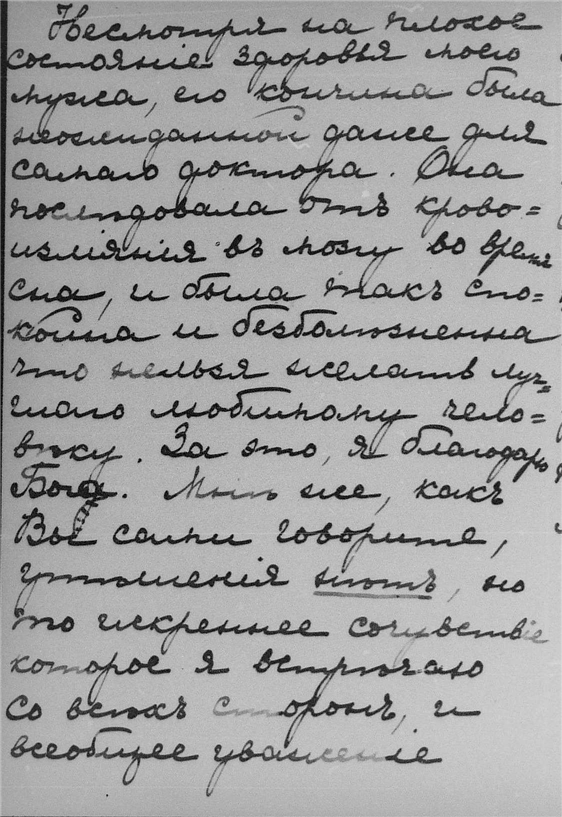 Несмотря на плохое
состояніе здоровья моего
мужа, его кончина была
неожиданной даже для
самаго доктора. Она
послѣдовала отъ крово=
изліянія въ мозгу во время
сна, и была такъ спо=
койна и безболѣзненна
что нельзя желать луч=
шаго любимому чело=
вѣку. За это, я благодарю
Бога. Мнѣ же, какъ
Вы сами говорите,
утѣшенія нѣтъ, но
то искреннее сочувствіе
которое я встрѣчаю
со всѣхъ сторонъ, и
всеобщее уваженіе